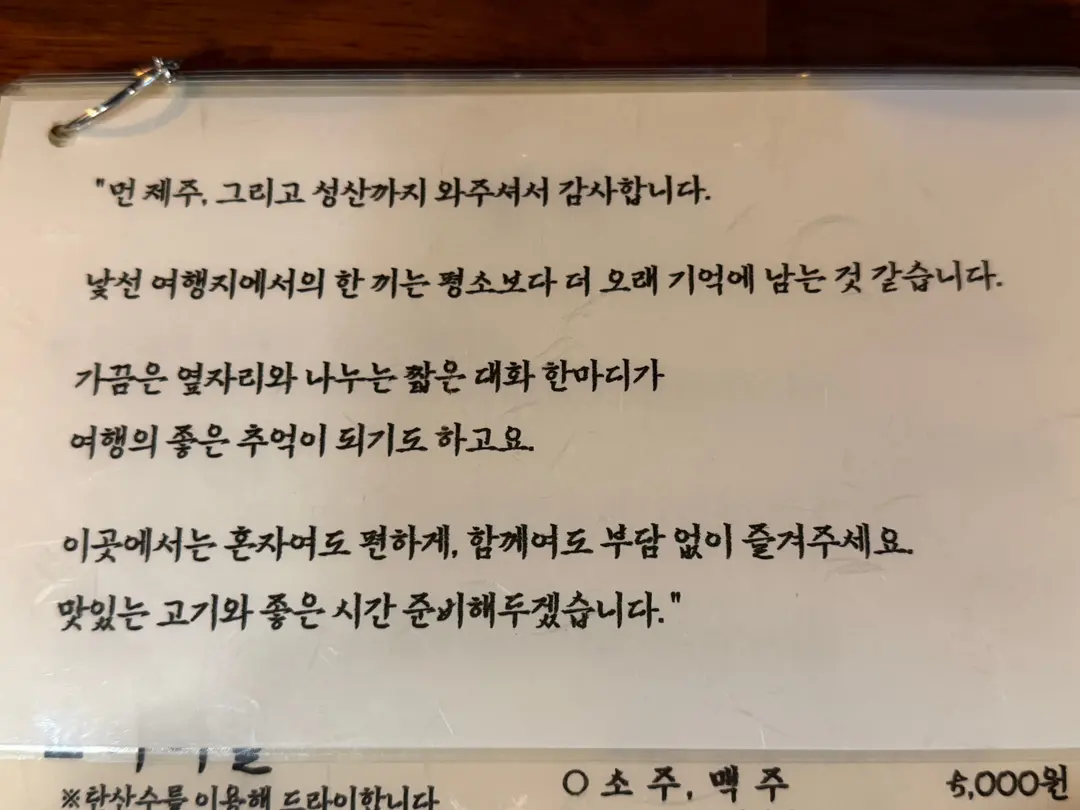 "먼 제주, 그리고 성산까지 와주셔서 감사합니다.
낯선 여행지에서의 한 끼는 평소보다 더 오래 기억에 남는 것 같습니다.
가끔은 옆자리와 나누는 짧은 대화 한마디가
여행의 좋은 추억이 되기도 하고요.
이곳에서는 혼자여도 편하게, 함께여도 부담 없이 즐겨주세요.
맛있는 고기와 좋은 시간 준비해두겠습니다."
○ 소 주, 맥 주 5,000원
※탄산수를 이용해 드라이합니다